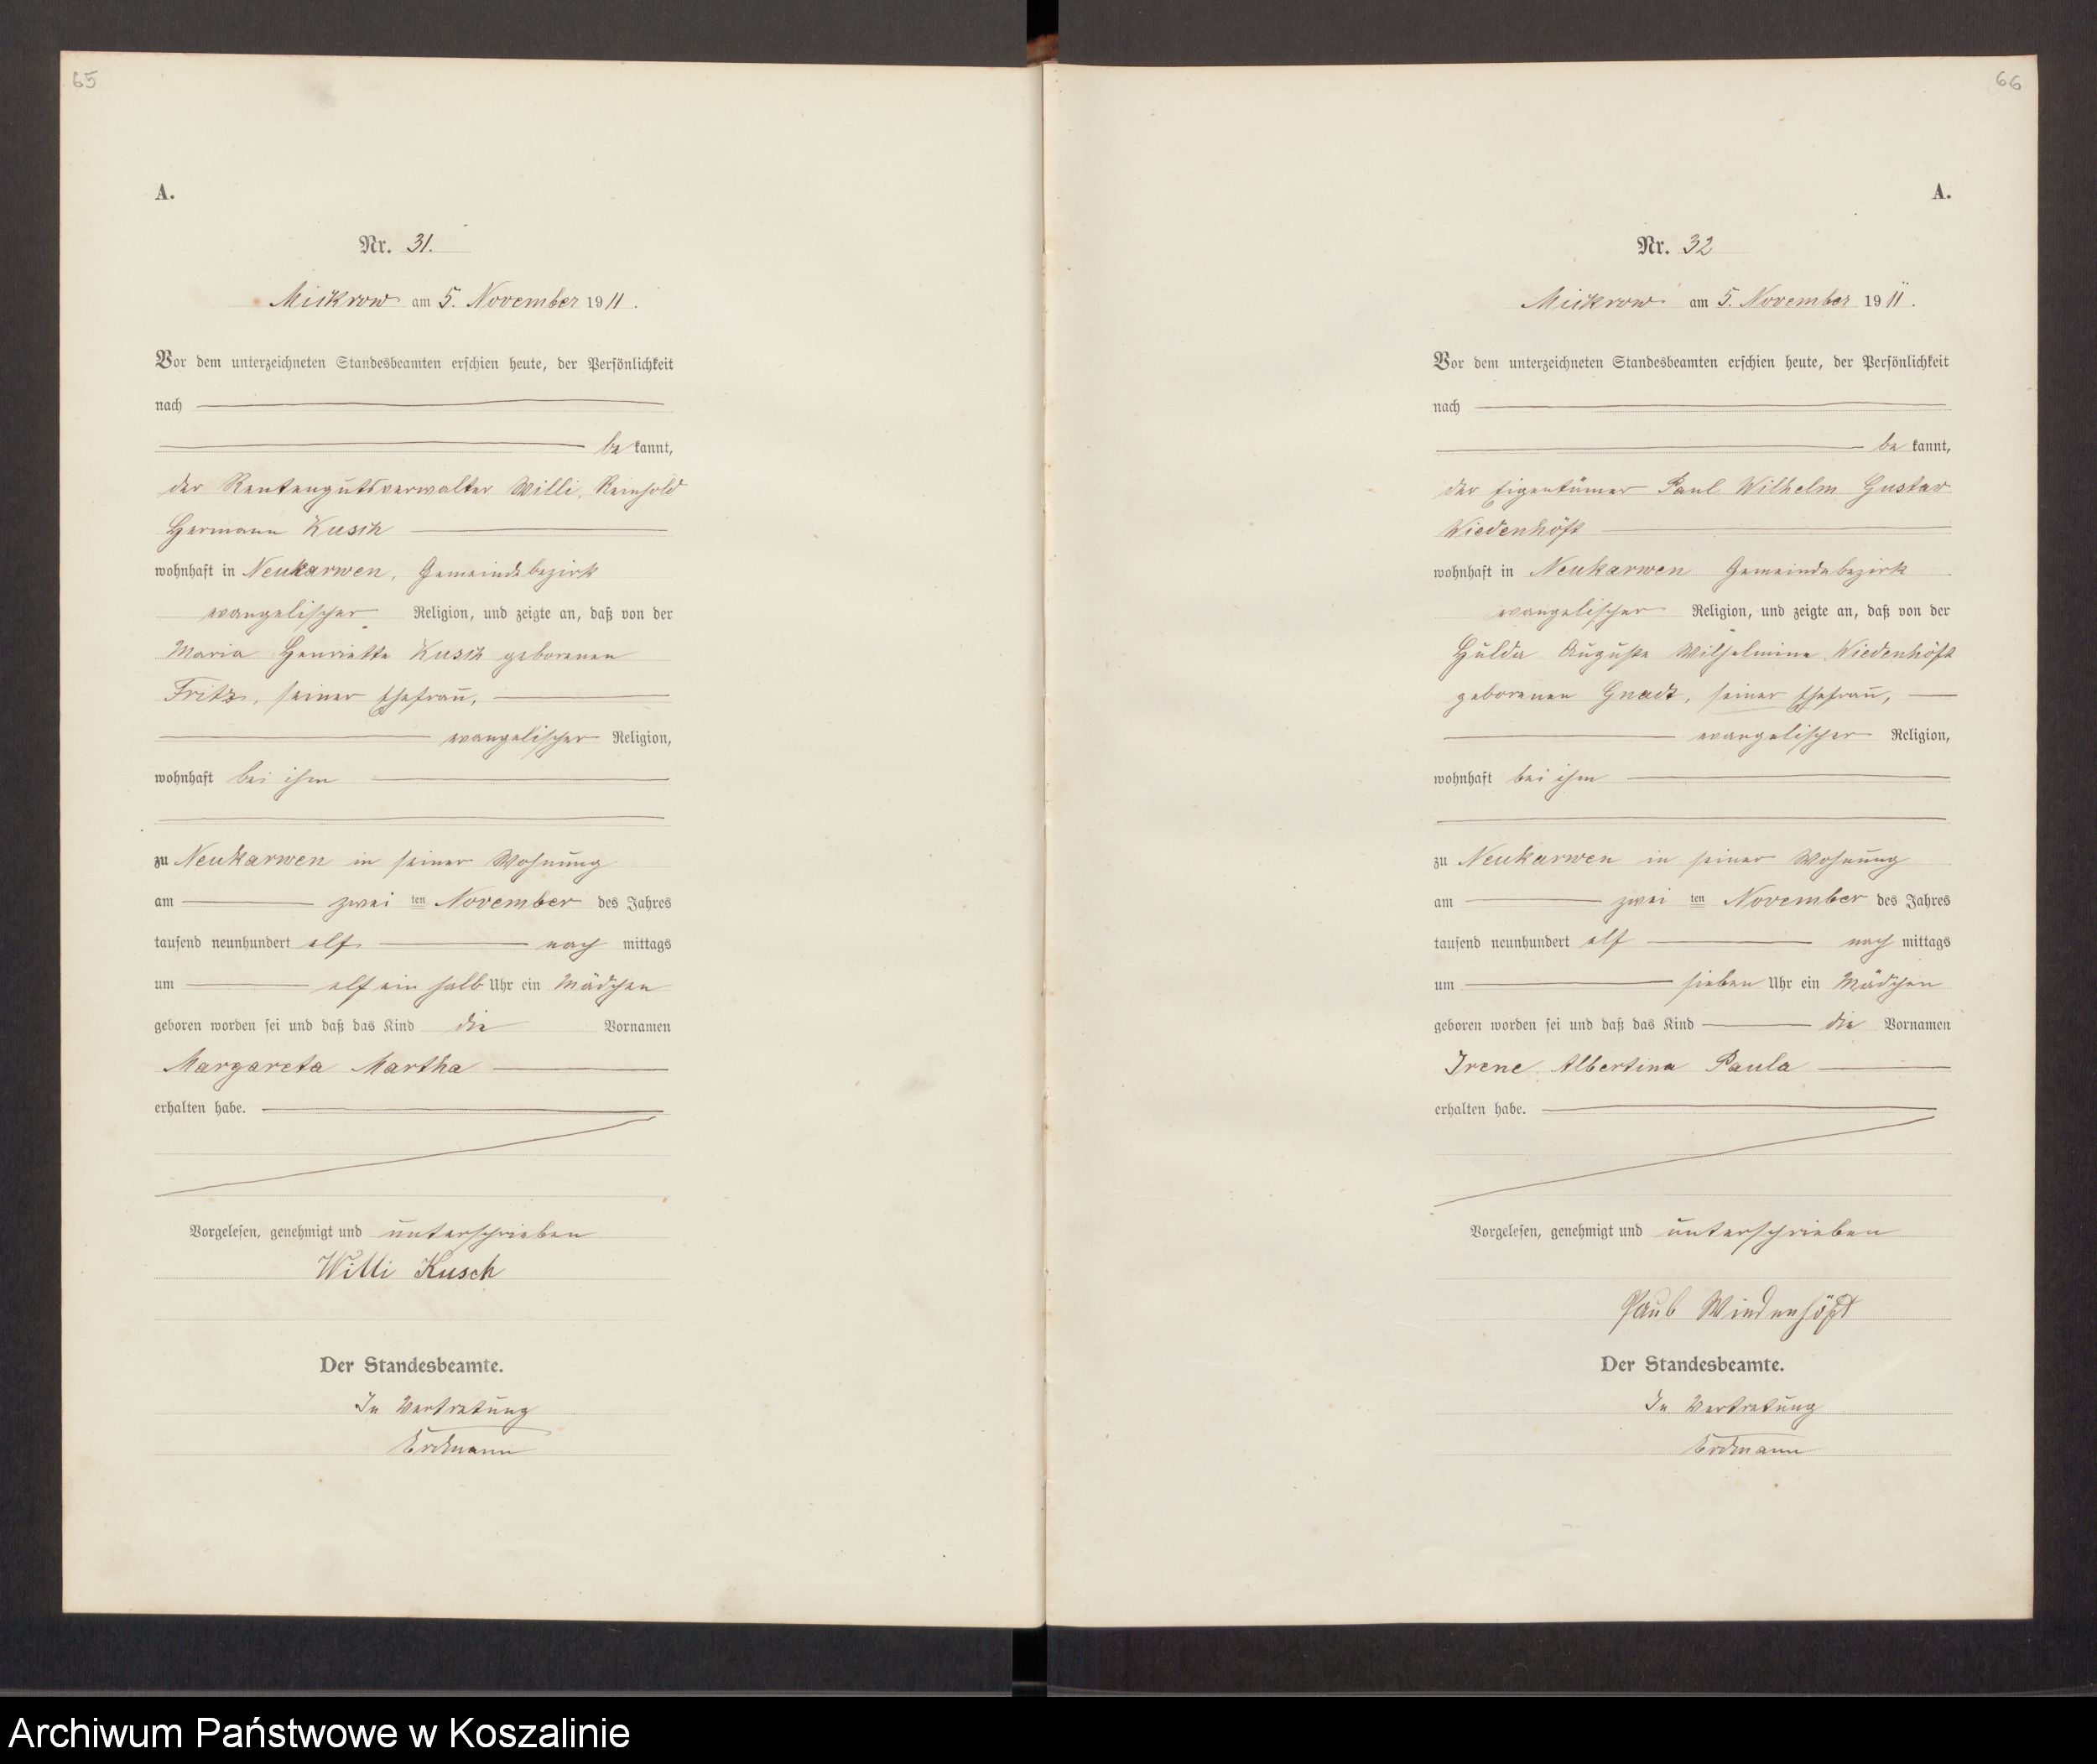 65
A.
Nr. 31.
Mickrow am 5. November 1911.
Vor dem unterzeichneten Standesbeamten erschien heute, der Persönlichkeit
nach
be kannt,
der Rentengutsverwalter Willi Reinhold
Hermann Kusch
wohnhaft in Neukarwen, Gemeindebezirk
evangelischer Religion, und zeigte an, daß von der
Maria Henriette Kusch geborenen
Fritz, seiner Ehefrau,
evangelischer Religion,
wohnhaft bei ihm
zu Neukarwen in seiner Wohnung
am zwei ten November des Jahres
tausend neunhundert elf nach mittags
um elf ein halb Uhr ein Mädchen
geboren worden sei und daß das Kind die Vornamen
Margareta Martha
erhalten habe.
Vorgelesen, genehmigt und unterschrieben
Willi Kusch
Der Standesbeamte.
In Vertretung
Erdmann
66
A.
Nr. 32
Mickrow am 5. November 1911.
Vor dem unterzeichneten Standesbeamten erschien heute, der Persönlichkeit
nach
be kannt,
der Eigentümer Paul Wilhelm Gustav
Wiedenhöft
wohnhaft in Neukarwen Gemeindebezirk
evangelischer Religion, und zeigte an, daß von der
Hulda Auguste Wilhelmine Wiedenhöft
geborenen Gnadt, seiner Ehefrau,
evangelischer Religion,
wohnhaft bei ihm
zu Neukarwen in seiner Wohnung
am zwei ten November des Jahres
tausend neunhundert elf nach mittags
um sieben Uhr ein Mädchen
geboren worden sei und daß das Kind die Vornamen
Irene Albertina Paula
erhalten habe.
Vorgelesen, genehmigt und unterschrieben
Paul Wiedenhöft
Der Standesbeamte.
In Vertretung
Erdmann
Archiwum Państwowe w Koszalinie